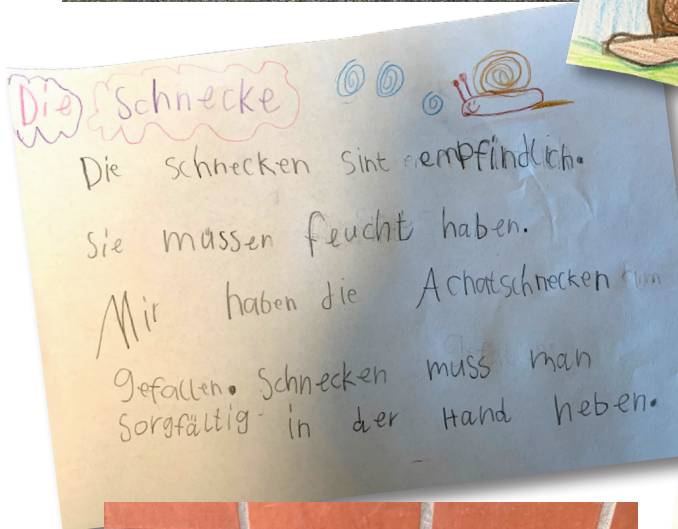 Die Schnecke
Die schnecken sint empfindlich.
sie müssen feucht haben.
Mir haben die Achatschnecken
gefallen. Schnecken muss man
Sorgfältig in der Hand heben.